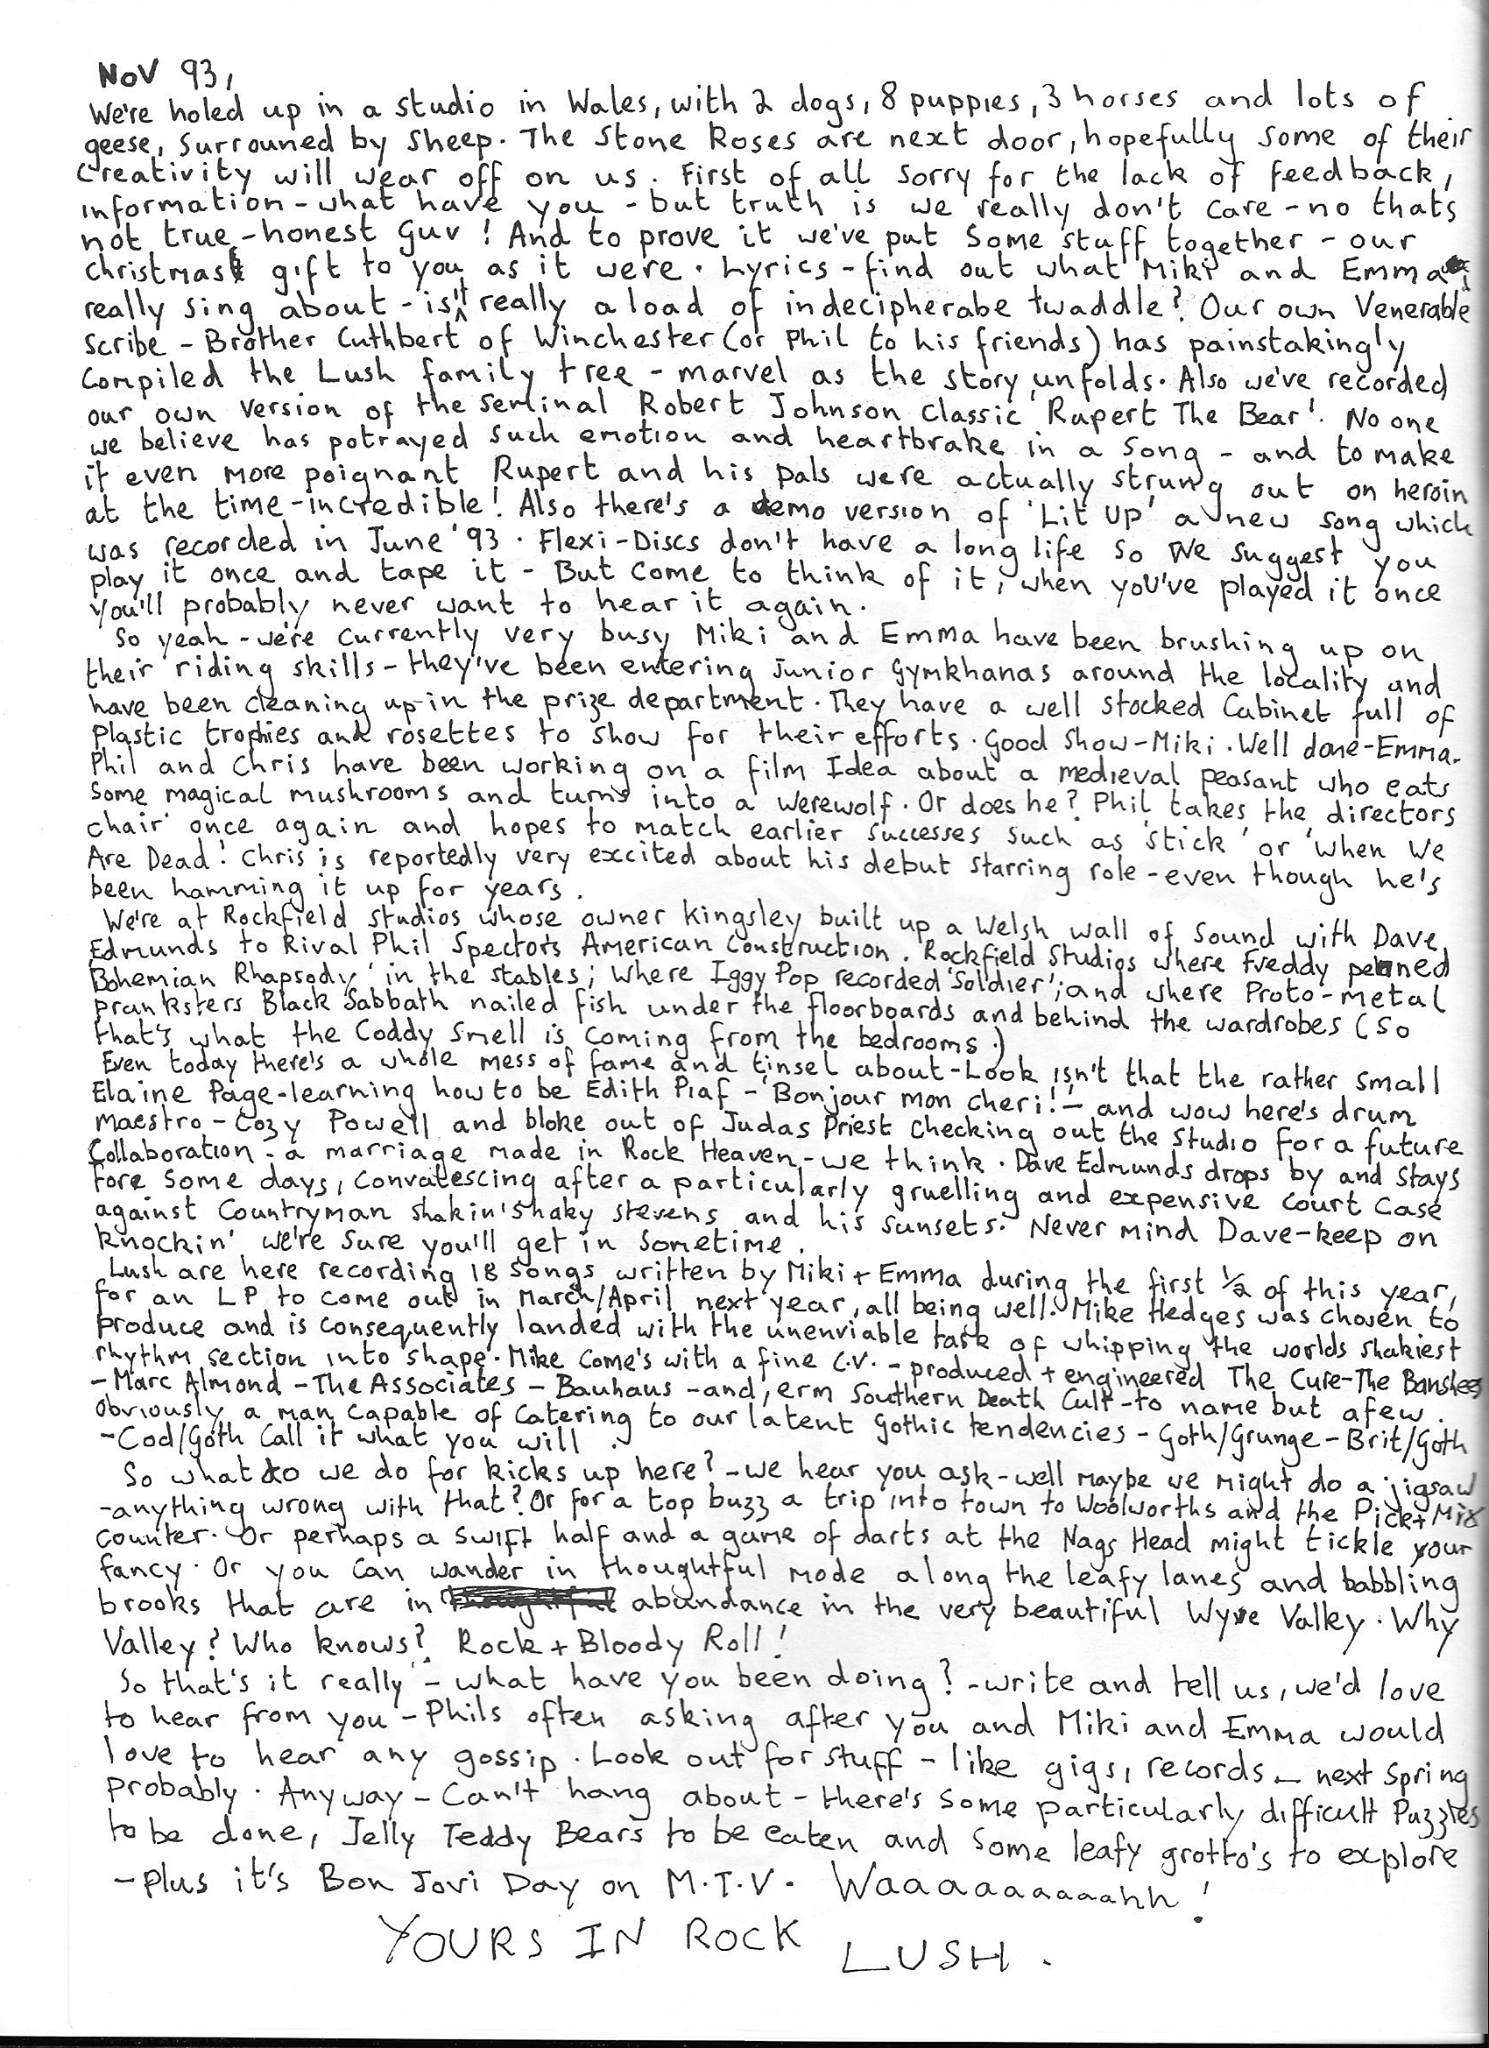 NOV 93,
We're holed up in a studio in Wales, with 2 dogs, 8 puppies, 3 horses and lots of
geese, surrouned by sheep. The Stone Roses are next door, hopefully some of their
creativity will wear off on us. First of all sorry for the lack of feedback,
information - what have you - but truth is we really don't care - no thats
not true - honest Guv! And to prove it we've put some stuff together - our
christmas gift to you as it were. Lyrics - find out what Miki and Emma
really sing about - is it really a load of indecipherabe twaddle? Our own Venerable
Scribe - Brother Cuthbert of Winchester (or Phil to his friends) has painstakingly
Compiled the Lush family tree - marvel as the story unfolds. Also we've recorded
our own version of the seminal Robert Johnson Classic 'Rupert The Bear'. No one
we believe has potrayed such emotion and heartbrake in a song - and to make
it even more poignant Rupert and his pals were actually strung out on heroin
at the time - incredible! Also there's a demo version of 'Lit Up' a new song which
was recorded in June '93. Flexi-Discs don't have a long life so we suggest you
play it once and tape it - But come to think of it, when you've played it once
you'll probably never want to hear it again.
So yeah - we're currently very busy Miki and Emma have been brushing up on
their riding skills - they've been entering Junior Gymkhanas around the locality and
have been cleaning up - in the prize department. They have a well stocked Cabinet full of
Plastic trophies and rosettes to show for their efforts. Good show - Miki. Well done - Emma.
Phil and Chris have been working on a film Idea about a medieval peasant who eats
some magical mushrooms and turns into a werewolf. Or does he? Phil takes the directors
chair once again and hopes to match earlier successes such as 'stick' or 'when we
Are Dead! Chris is reportedly very excited about his debut starring role - even though he's
been hamming it up for years.
We're at Rockfield studios whose owner Kingsley built up a Welsh wall of sound with Dave
Edmunds to Rival Phil Spectors American Construction. Rockfield Studios where Freddy penned
Bohemian Rhapsody' in the stables; where Iggy Pop recorded 'Soldier'; and where Proto-metal
pranksters Black Sabbath nailed fish under the floorboards and behind the wardrobes (so
that's what the Coddy smell is coming from the bedrooms.)
Even today there's a whole mess of fame and tinsel about - Look isn't that the rather small
Elaine Page - learning how to be Edith Piaf - 'Bonjour mon cheri!' - and wow here's drum
maestro - Cozy Powell and bloke out of Judas Priest checking out the studio for a future
Collaboration - a marriage made in Rock Heaven - we think. Dave Edmunds drops by and stays
fore some days, convalescing after a particularly gruelling and expensive court case
against Countryman shakin' Shaky Stevens and his sunsets. Never mind Dave - keep on
knockin' we're sure you'll get in sometime.
Lush are here recording 18 songs written by Miki + Emma during the first 1/2 of this year,
for an LP to come out in March/April next year, all being well. Mike Hedges was chosen to
produce and is consequently landed with the unenviable task of whipping the worlds shakiest
rhythm section into shape. Mike come's with a fine C.V. - produced + engineered The Cure - The Banshees
- Marc Almond - The Associates - Bauhaus - and, erm Southern Death Cult - to name but a few.
Obviously a man capable of catering to our latent gothic tendencies - Goth/Grunge - Brit/Goth
- Cod/Goth Call it what you will.
So what do we do for kicks up here? - we hear you ask - well maybe we might do a jigsaw
- anything wrong with that? Or for a top buzz a trip into town to Woolworths and the Pick + Mix
counter. Or perhaps a swift half and a game of darts at the Nags Head might tickle your
fancy. Or you can wander in thoughtful mode along the leafy lanes and babbling
brooks that are in abundance in the very beautiful Wye Valley. Why
Valley? Who knows? Rock + Bloody Roll!
So that's it really - what have you been doing? - write and tell us, we'd love
to hear from you - Phils often asking after you and Miki and Emma would
love to hear any gossip. Look out for stuff - like gigs, records - next spring
probably. Anyway - Can't hang about - there's some particularly difficult Puzzles
to be done, Jelly Teddy Bears to be eaten and some leafy grotto's to explore
- plus it's Bon Jovi Day on M.T.V. Waaaaaaaaaahh!
YOURS IN ROCK LUSH.